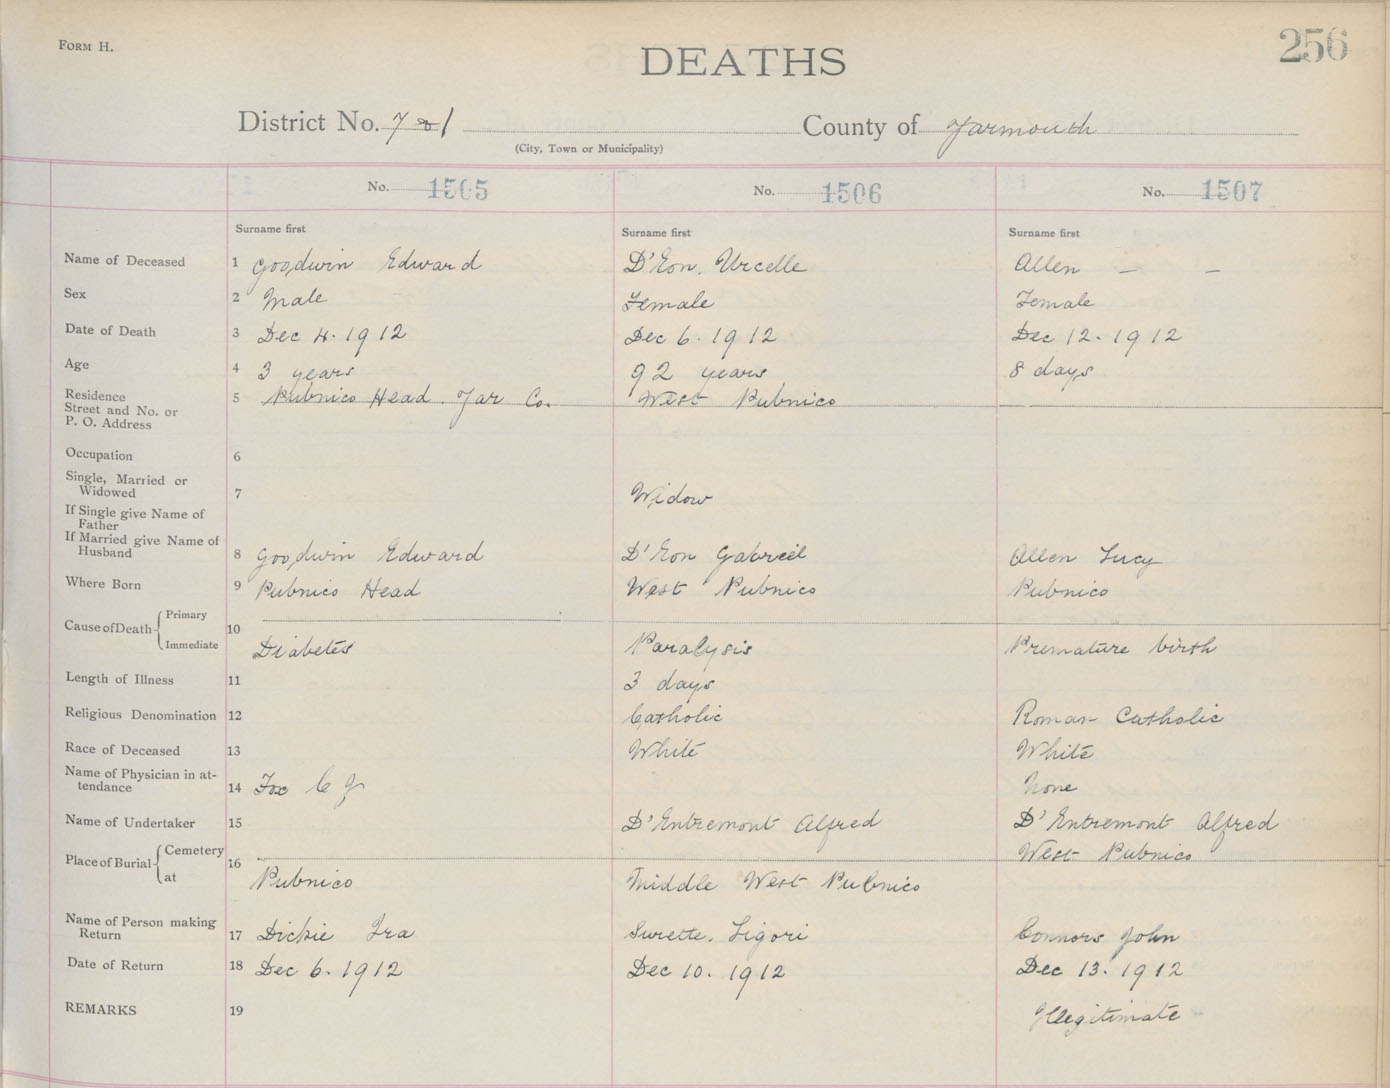 FORM H.
256
DEATHS
District No. 7 County of Yarmouth
(City, Town or Municipality)
No. 1505 No. 1506 No. 1507
Surname first Surname first Surname first
Name of Deceased 1 Goodwin Edward D'Eon, Urcelle Allen — —
Sex 2 Male Female Female
Date of Death 3 Dec 4. 1912 Dec 6. 1912 Dec 12. 1912
Age 4 3 years 92 years 8 days
Residence Street and No. or P. O. Address 5 Pubnico Head. Yar Co. West Pubnico
Occupation 6
Single, Married or Widowed 7 Widow
If Single give Name of Father
If Married give Name of Husband 8 Goodwin Edward D'Eon Gabriel Allen Lucy
Where Born 9 Pubnico Head West Pubnico Pubnico
Cause of Death Primary
Immediate 10 Diabetes Paralysis Premature birth
Length of Illness 11 3 days
Religious Denomination 12 Catholic Roman Catholic
Race of Deceased 13 White White
Name of Physician in attendance 14 Fox C J None
Name of Undertaker 15 D'Entremont Alfred D'Entremont Alfred
Place of Burial Cemetery West Pubnico
at 16 Pubnico Middle West Pubnico
Name of Person making Return 17 Dickie Ira Surette, Ligori Connors John
Date of Return 18 Dec 6. 1912 Dec 10. 1912 Dec 13. 1912
REMARKS 19 Illegitimate